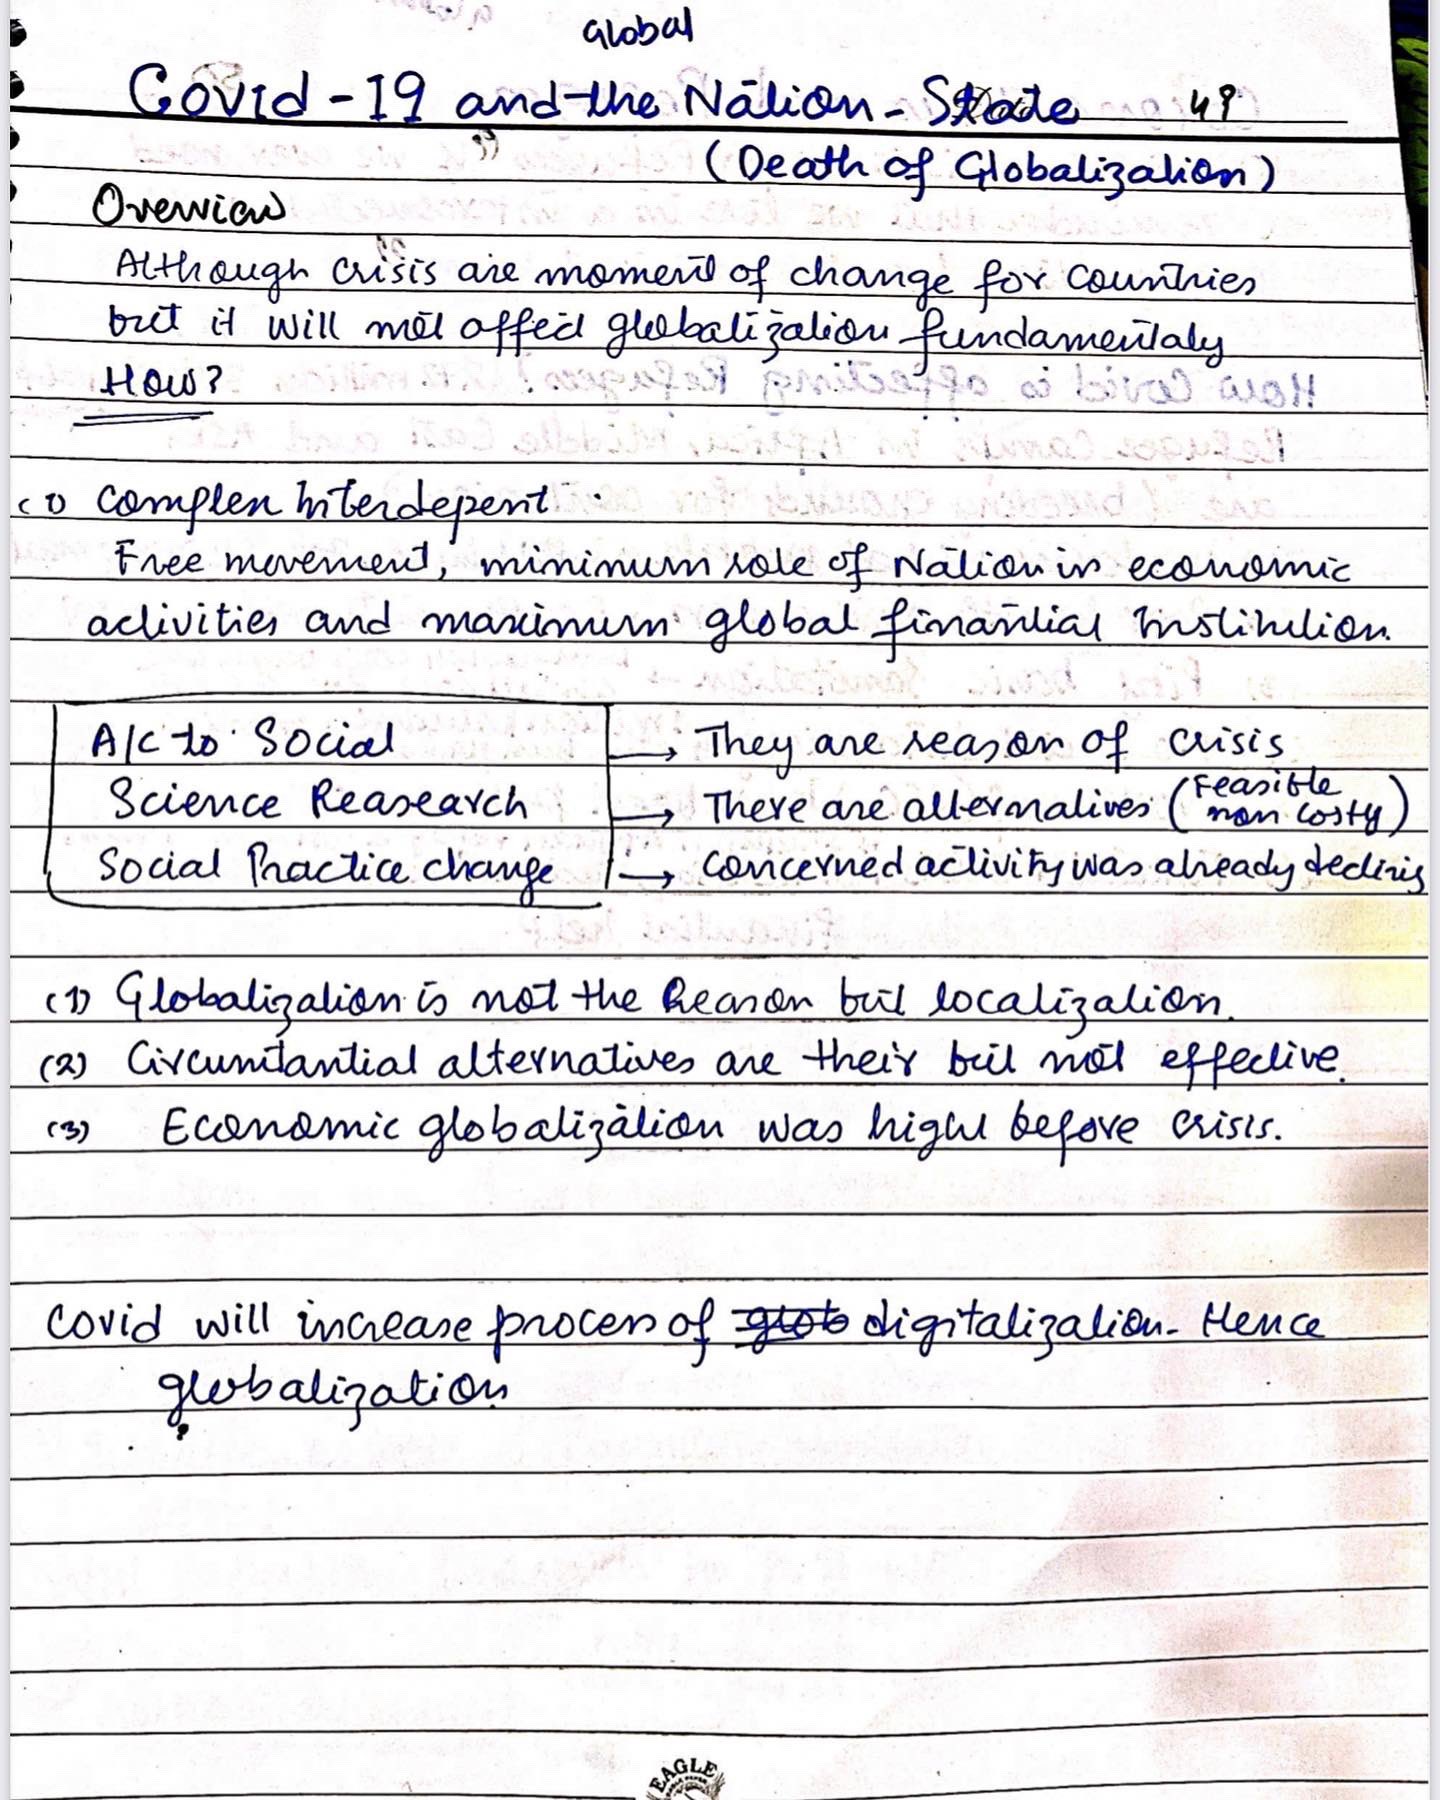 Global
Covid-19 and the Nation-State 49
(Death of Globalization)
Overview
Although crisis are moment of change for countries
but it will not affect globalization fundamentaly
How?
(1) Complex Interdepent
Free movement, minimum role of Nation in economic
activities and maximum global finantial Institution.
A/C to Social → They are reason of crisis
Science Reasearch → There are alternatives (Feasible non costy)
Social Practice change → Concerned activity was already declinig
(1) Globalization is not the Reason but localization.
(2) Circumtantial alternatives are their but not effective.
(3) Economic globalization was high before crisis.
Covid will increase process of glob digitalization. Hence
globalization
EAGLE